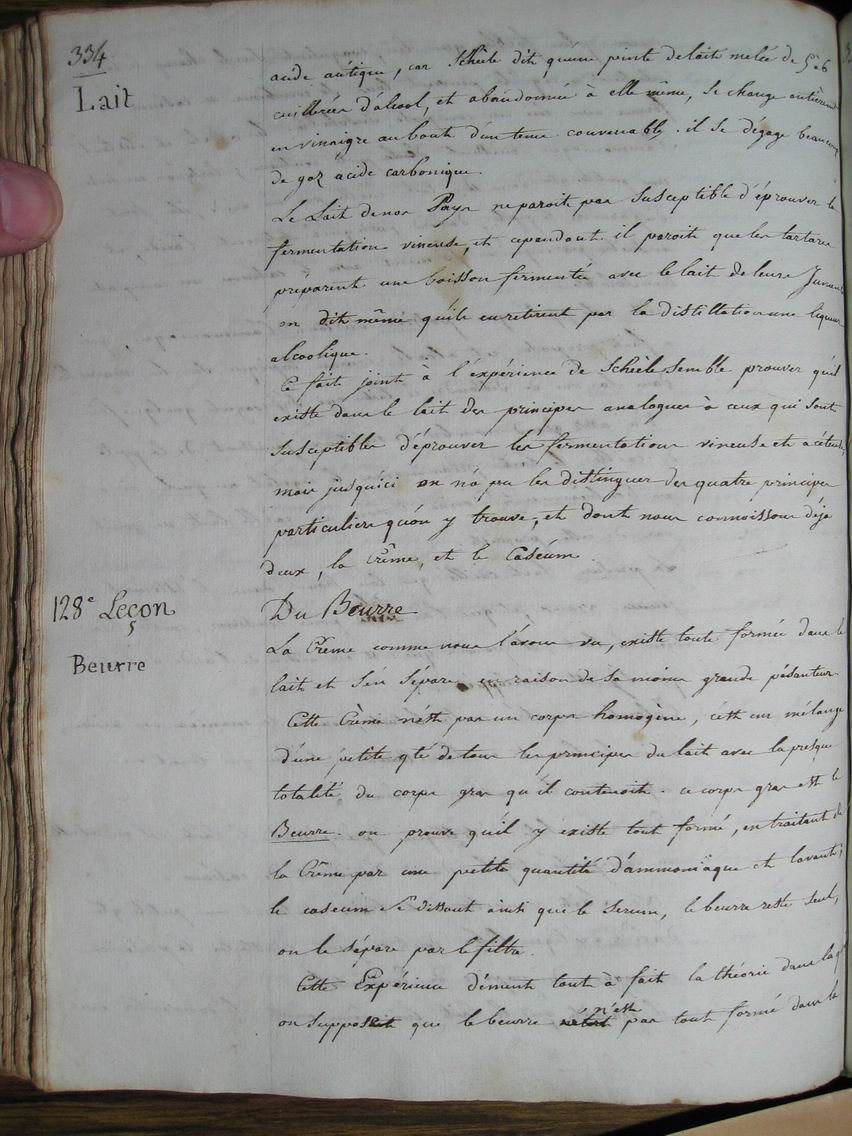 334
Lait
acide acétique, car Schéele dit qu'une pinte de lait melée de 5 à 6
cuillérées d'alcool, et abandonnée à elle même, se change entièrem
en vinaigre au bout d'un tems convenable. il se degage beaucoup
de gaz acide carbonique.
Le Lait de nos Pays ne paroit pas susceptible d'éprouver la
fermentation vineuse, et cependant il paroit que les tartares
préparent une boisson fermentée avec le lait de leurs Jumens
on dit même qu'ils en retirent par la distillation une liqueur
alcoolique.
Ce fait joint à l'expérience de Schéele semble prouver qu'il
existe dans le lait des principes analogues à ceux qui sont
susceptibles d'éprouver les fermentations vineuse et acéteuse,
mais jusqu'ici on n'a pu les distinguer des quatre principes
particuliers qu'on y trouve, et dont nous connoissons déja
deux, la Crême, et le Caséum.
128e Leçon
Du Beurre
Beurre
La Crême comme nous l'avons vu, existe toute formée dans le
lait et s'en sépare en raison de sa moins grande pésanteur.
Cette Crème n'est pas un corps homogène, c'est un mélange
d'une petite qté de tous les principes du lait avec la presque
totalité du corps gras qu'il contenoit. ce corps gras est le
Beurre. on prouve qu'il y existe tout formé, en traitant de
la Crême par une petite quantité d'ammoniaque et lavant;
le caséum se dissout ainsi que le serum, le beurre reste seul,
on le sépare par le filtre.
Cette Expérience dément tout à fait la théorie dans laq
on suppose que le beurre n'est pas tout formé dans la